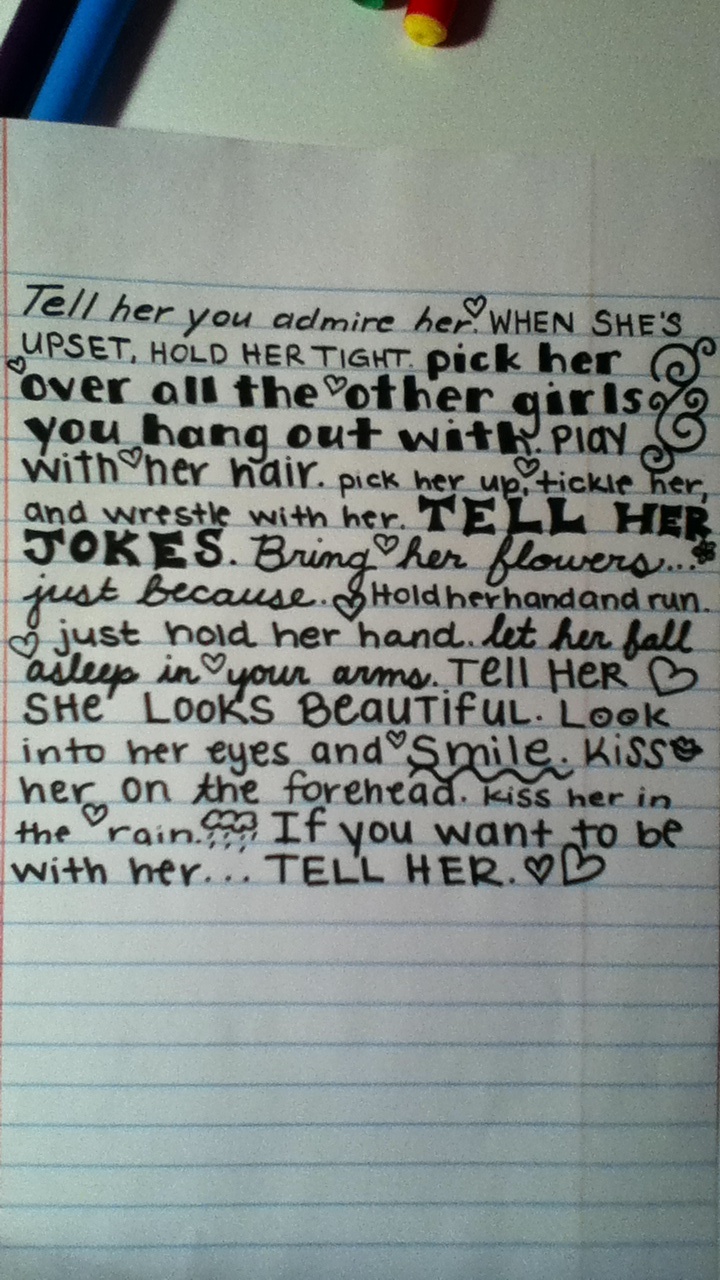 Tell her you admire her. WHEN SHE'S
UPSET, HOLD HER TIGHT. pick her
over all the other girls
you hang out with. PlAY
with her hair. pick her up, tickle her,
and wrestle with her. TELL HER
JOKES. Bring her flowers...
just because. Hold her hand and run.
just hold her hand. let her fall
asleep in your arms. Tell HeR
SHe LOOKS BeAUTiFUL. Look
into her eyes and smile. Kiss
her on the forehead. kiss her in
the rain. If you want to be
with her... TELL HER.